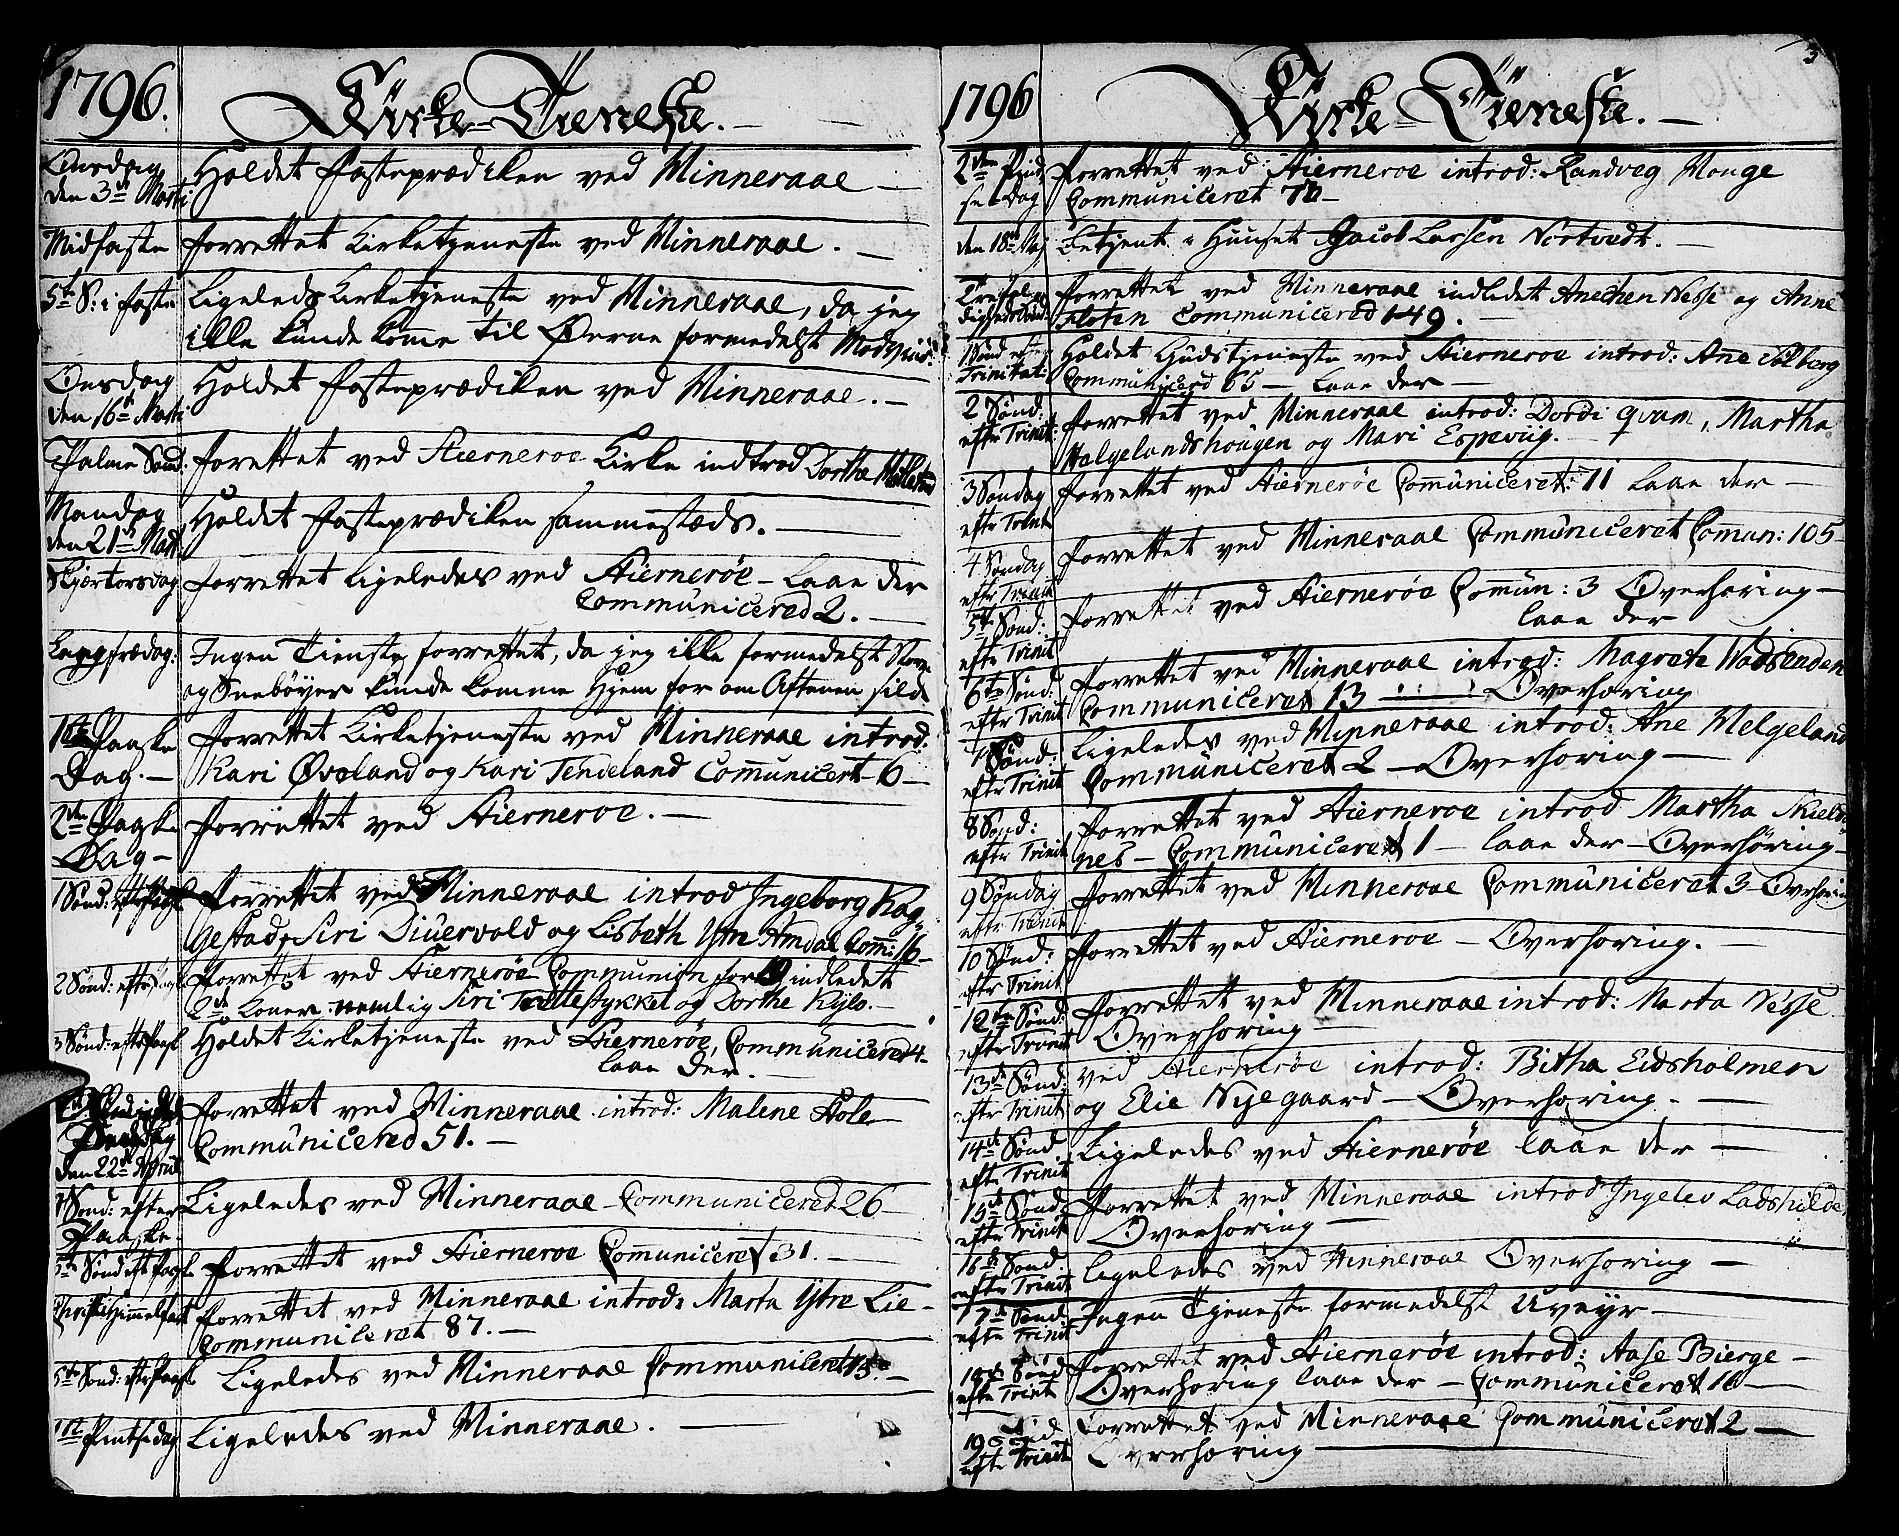 1796. Kirke-Tieneste.
Onsdag Holdet Fasteprædiken ved Minneraae
den 3de Marti
Midfaste forrettet Kirketjeneste ved Minneraae.
5te S: i faste Ligeleds Kirketjeneste ved Minneraae, da jeg
ikke kunde komme til Øerne formedelst Modvind.
Onsdag Holdet Fasteprædiken ved Minneraae.
den 16de Marti
Palme Sønd: forettet ved Hiernerøe Kirke indtrod Dorthe
Mandag Holdet Fasteprædiken sammestæds.
den 21de Mart
Skjærtorsdag forrettet ligeledes ved Hiernerøe - laae der
Communicered 2.
Langfredag: Ingen Tieneste forrettet, da jeg ikke formedelst Storm
og Sneebøyer kunde komme Hjem for om Aftenen silde
1ste Paaske forrettet Kirketjeneste ved Minneraae introd:
Dag. Kari Øveland og Kari Tendeland Comunicert 6
2den Paaske forrettet ved Hiernerøe.
Dag
1 Sønd: efter Paaske forrettet ved Minneraae introd Ingeborg Kag
gestad, Siri Diuervold og Lisbeth Ytre Amdal Com: 16
2 Sønd: efter forrettet ved Hiernerøe Communion for indledet
2de Koner nemlig Siri og Dorthe
3 Sønd: efter Paaske Holdet Kirketjeneste ved Hiernerøe, Communicered 4
laae der.
forrettet ved Minneraae introd: Malene Hole
Communicered 51.
den 22de April
4 Sønd: efter Ligeledes ved Minneraae Communicered 26
Paaske.
5te Sønd eft Paaske forrettet ved Hiernerøe Communiceret 31.
Christi Himmelfart forrettet ved Minneraae introd: Marta Ytre Lie
Communiceret 87.
Sønd: efter Paaske Ligeledes ved Minneraae Communiceret 15
1ste Pintsedag Ligeledes ved Minneraae.
3
1796 Kirke-Tieneste.
2den Pind forrettet ved: Hiernerøe introd: Randveg Mouge
se Dag Communiceret
den 18de Maj betjent i Huuset Jacob Larsen Nortvedt.
Trefol forrettet ved Minneraae indledet Anechen Nesse og Anne
digheds Sønd: Floten Communicered 149.
1 Sønd efter Holdet Gudstjeneste ved Hiernerøe introd: Ane Solberg
Trinitat: Communicered 65 - laae der
2 Sønd: forrettet ved Minneraae introd: Dordi Qvam, Martha
efter Trinit: Halgelandshougen og Mari Espeviig.
3 Søndag forrettet ved Hiernerøe Communiceret: 11 laae der
efter Trinit
4 Søndag forrettet ved Minneraae Communiceret Comun: 105
efter Trinit
5te Sønd: forrettet ved Hiernerøe Comun: 3 Overhøring
efter Trinit laae der
6te Sønd: forrettet ved Minneraae introd: Magrete Wadsenden
efter Trinit Communiceret 13 Overhøring
7 Sønd: Ligeledes ved Minneraae introd: Ane Melgeland
efter Trinit Communiceret 2 - Overhøring
8 Sønd: forrettet ved Hiernerøe introd Martha Skiel
efter Trinit nes - Communiceret 1 - laae der - Overhøring
9 Søndag forrettet ved Minneraae Communiceret 3 Overhøring
efter Trinit
10 Sønd: forrettet ved Hiernerøe - Overhøring.
efter Trinit
12te Sønd: forrettet ved Minneraae introd: Marta Nesse
efter Trinit Overhøring
13de Sønd: ved Hiernerøe introd: Bitha Eidsholmen
efter Trinit og Elie Nyegaard - Overhøring.
14de Sønd Ligeledes ved Hiernerøe laae der
efter Trinit
15de Sønd: forrettet ved Minneraae introd Ingelev Ladshilde
efter Trinit Overhøring
16de Sønd. ligeledes ved Minneraae Overhøring
efter Trinit
17de Sønd. Ingen Tjeneste formedelst Uveyr
efter Trinit
18de Sønd forrettet ved Hiernerøe introd: Aase Bierge
efter Trinit Overhøring laae der - Communiceret 10
19 Sønd forrettet ved Minneraae Communiceret 2
efter Trinit Overhøring